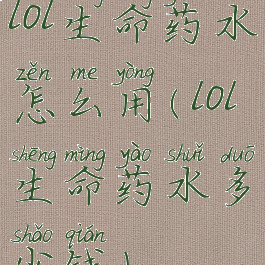 lol生命药水
zěn me yòng
怎么用(lol
shēng mìng yào shuǐ duō
生命药水多
shǎo qián
少钱)